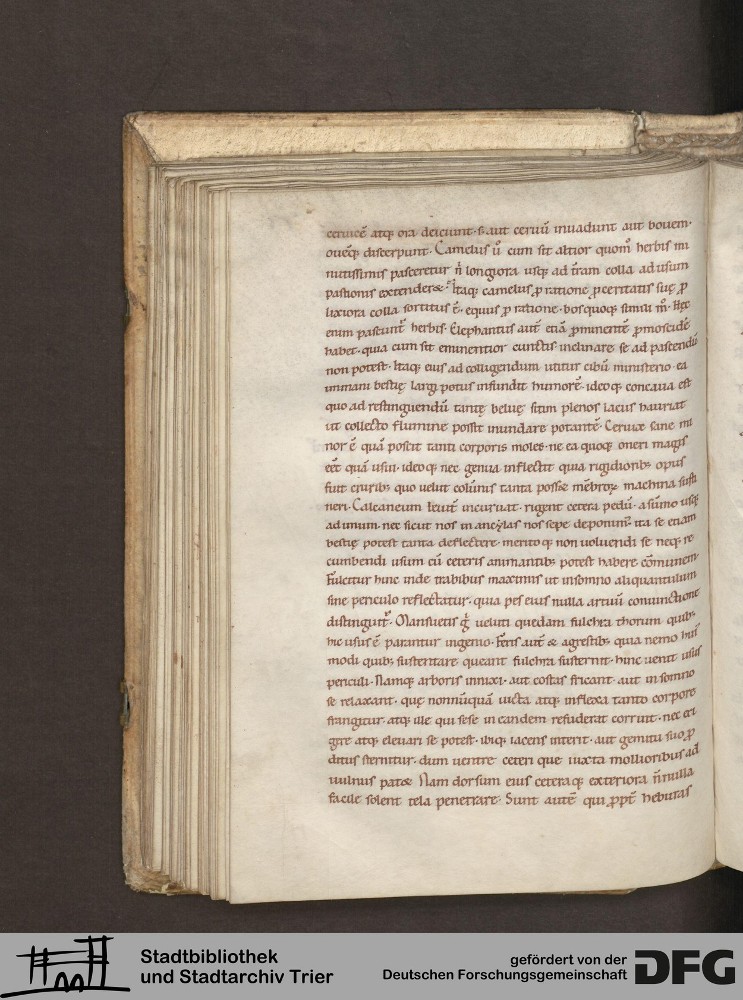 ceruicē atq; ora deiciunt· s; aut ceruū inuadunt aut bouem·
ouēq; discerpunt· Camelus ū cum sit altior quom̊ herbis mi
nutissimis pasceretur n̄ longiora usq; ad t̄ram colla ad usum
pastionis extender&· Itaq; camelus ꝓ ratione ꝓceritatis suę ꝓ
lixiora colla sortitus ē· equus ꝓ ratione· bos quoq; simili m̊· Hęc
enim pascunt̄ herbis· Elephantus aut̄ etiā ꝓminentē ꝓmoscidē
habet· quia cum sit eminentior cunctis inclinare se ad pascendū
non potest· Itaq; eius ad colligendum utitur cibū ministerio· ea
inmani bestię largi potus infundit humorē· ideoq; concaua est
quo ad restinguendū tantę beluę sitim plenos lacus hauriat
ut collecto flumine possit inundare potantē· Ceruix sane mi
nor ē quā poscit tanti corporis moles· ne ea quoq; oneri magis
eēt quā usui· ideoq; nec genua inflectit quia rigidiorib; opus
fuit crurib; quo uelut colūnis tanta poss& mēbroꝝ machina susti
neri· Calcaneum leuit̄ incuruat· rigent cetera pedū· a sūmo usq;
ad imum· nec sicut nos in ancylas nos sepe deponim̄ ita se etiam
bestię potest tanta deflectere· merito q; non uoluendi se neq; re
cumbendi usum cū ceteris animantib; potest habere cōmunem·
Fulcitur hinc inde trabibus maximis ut in somno aliquantulum
sine periculo reflectatur· quia pes eius nulla artuū coniunctione
distinguit̄· Mansuetis ḡ ueluti quędam fulchra thorum quib;
hic usus ē parantur ingenio· Feris aut̄ & agrestib; quia nemo hui
modi quib; sustentare queant fulchra susternit· hinc uenit usus
periculi· Namq; arboris innixi· aut costas fricant· aut in somno
se relaxant· quę nonnūquā uicta atq; inflexa tanto corpore
frangitur· atq; ille qui sese in eandem refuderat corruit· nec eri
gere atq; eleuari se potest· ibiq; iacens interit· aut gemitu suo ꝓ
ditus sternitur· dum uentre ceteri que iuxta mollioribus ad
uulnus pat& Nam dorsum eius ceteraq; exteriora n̄ nulla
facile solent tela penetrare· Sunt autē qui ꝓpt̄ heburas
Stadtbibliothek
und Stadtarchiv Trier
gefördert von der
Deutschen Forschungsgemeinschaft
DFG